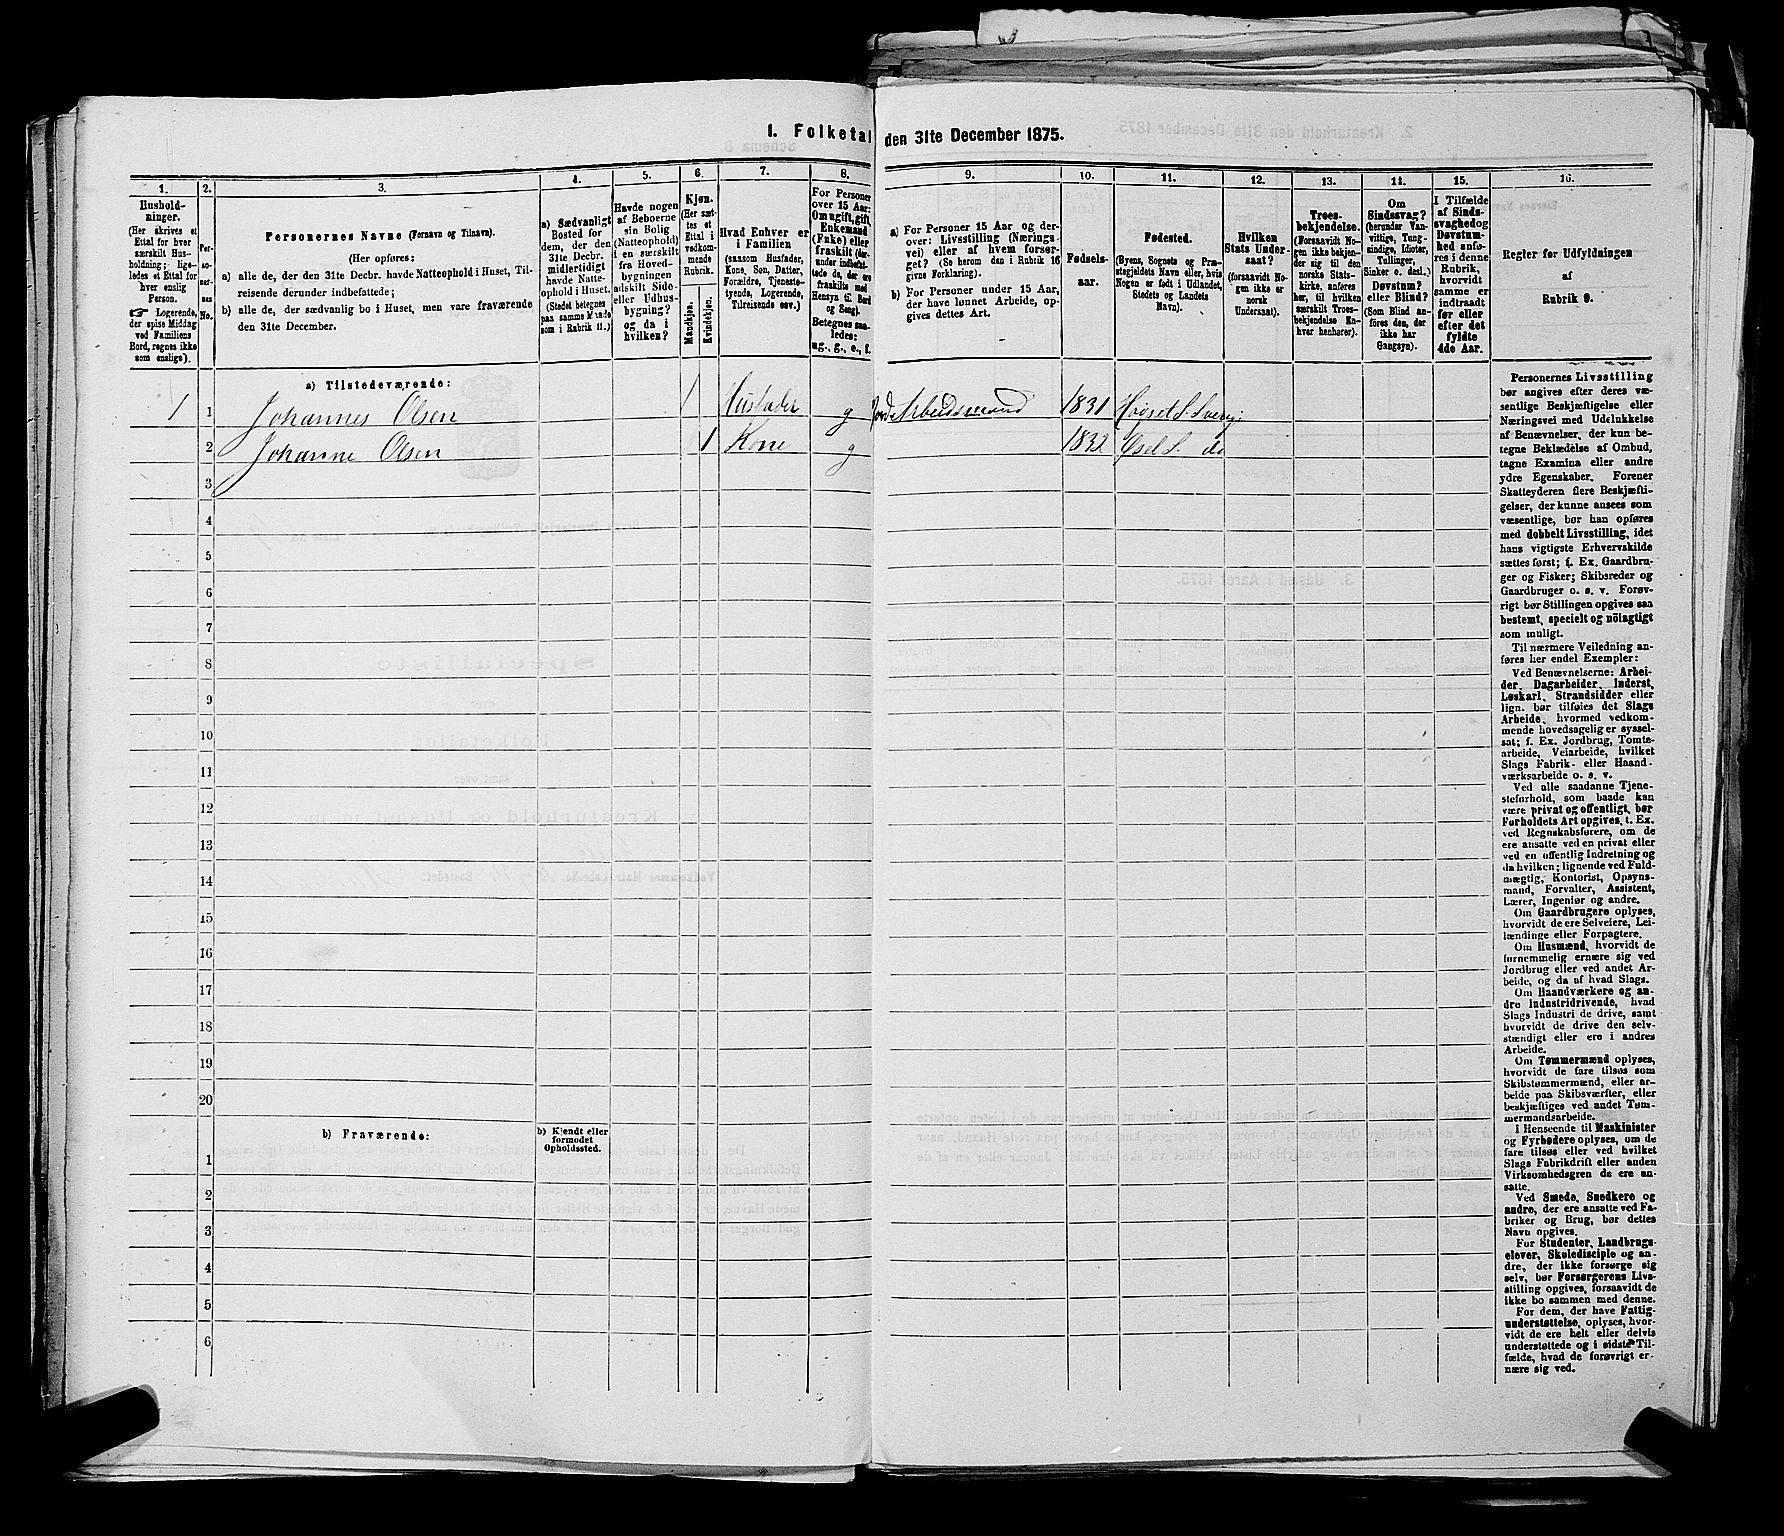 I. Folketal den 31te December 1875.
1.
Hushold-
ninger.
(Her skrives et
Ettal for hver
særskilt Hus-
holdning; lige-
ledes et Ettal for
hver enslig
Person.
☞ Logerende,
der spise Middag
ved Familiens
Bord, regnes ikke
som enslige).
2.
Per-
so-
ner-
nes
No.
3.
Personernes Navne (Fornavn og Tilnavn).
(Her opføres:
a) alle de, der den 31te Decbr. havde Natteophold i Huset, Til-
reisende derunder indbefattede;
b) alle de, der sædvanlig bo i Huset, men vare fraværende
den 31te December.
4.
a) Sædvanligt
Bosted for
dem, der den
31te Decbr.
midlertidigt
havde Natte-
ophold i Huset.
(Stedet betegnes
paa samme Maade
som i Rubrik 11.)
5.
Havde nogen
af Beboerne
sin Bolig
(Natteophold)
i en særskilt
fra Hoved-
bygningen
adskilt Side-
eller Udhus-
bygning?
og da i
hvilken?
6.
Kjøn.
(Her sæt-
tes et
Ettal i
vedkom-
mende
Rubrik.
Mandkjøn.
Kvindekjøn.
7.
Hvad Enhver er
i Familien
(saasom Husfader,
Kone, Søn, Datter,
Forældre, Tjeneste-
tyende, Logerende,
Tilreisende osv.)
8.
For Personer
over 15 Aar:
Om ugift, gift,
Enkemand
(Enke) eller
fraskilt (der-
under indbefat-
tede de, der ere
fraskilte med
Hensyn til Bord
og Seng).
Betegnes saa-
ledes:
ug., g., e., f.
9.
a) For Personer 15 Aar og der-
over: Livsstilling (Nærings-
vei) eller af hvem forsør-
get? (Se herom den i Rubrik 16
givne Forklaring).
b) For Personer under 15 Aar,
der have lønnet Arbeide, op-
gives dettes Art.
10.
Fødsels-
aar.
11.
Fødested.
(Byens, Sognets og Præ-
stegjeldets Navn eller, hvis
Nogen er født i Udlandet,
Stedets og Landets
Navn).
12.
Hvilken
Stats Under-
saat?
(forsaavidt No-
gen ikke er
norsk
Undersaat).
13.
Troes-
bekjendelse.
(Forsaavidt No-
gen ikke bekjen-
der sig til den
norske Stats-
kirke, anføres
her, til hvilken
særskilt Troes-
bekjendelse En-
hver henhører).
14.
Om
Sindssvag?
(herunder Van-
vittige, Tung-
sindige, Idioter,
Tullinger,
Sinker o. desl.)
Døvstum?
eller Blind?
(Som Blind an-
føres den, der
ikke har
Gangsyn).
15.
I Tilfælde
af Sinds-
svaghed og
Døvstum-
hed anfø-
res i denne
Rubrik,
hvorvidt
samme er
indtraadt
før eller
efter det
fyldte
4de Aar.
16.
Regler for Udfyldningen
af
Rubrik 9.
a) Tilstedeværende:
1 1 Johannes Olsen 1 Husfader g Arbeidsmand 1831
2 Johanne Olsen 1 Kone g 1832 do
3
4
5
6
7
8
9
10
11
12
13
14
15
16
17
18
19
20
b) Fraværende:
b) Kjendt eller
formodet
Opholdssted.
1
2
3
4
5
6
Personernes Livsstilling
bør angives efter deres væ-
sentlige Beskjæftigelse eller
Næringsvei med Udelukkelse
af Benævnelser, der kun be-
tegne Beklædelse af Ombud,
tagne Examina eller andre
ydre Egenskaber. Forener
Skatteyderen flere Beskjæfti-
gelser, der kunne ansees som
væsentlige, bør han opføres
med dobbelt Livsstilling, idet
hans vigtigste Erhvervskilde
sættes først; f. Ex. Gaardbru-
ger og Fisker; Skibsreder og
Gaardbruger o. s. v. Forøv-
rigt bør Stillingen opgives saa
bestemt, specielt og nöiagtigt
som muligt.
Til nærmere Veiledning an-
føres her endel Exempler:
Ved Benævnelserne: Arbei-
der, Dagarbeider, Inderst,
Løskarl, Strandsidder eller
lign. bør tilføies det Slags
Arbeide, hvormed vedkom-
mende hovedsagelig er syssel-
sat; f. Ex. Jordbrug, Tomte-
arbeide, Veiarbeide, hvilket
Slags Fabrik- eller Haand-
værksarbeide o. s. v.
Ved alle saadanne Tjene-
steforhold, som baade kan
være privat og offentligt, bør
Forholdets Art opgives, t. Ex.
ved Regnskabsførere, om de
ere ansatte ved en privat eller
ved en offentlig Indretning og
da hvilken; lignende ved Fuld-
mægtig, Kontorist, Opsyns-
mand, Forvalter, Assistent,
Lærer, Ingeniør og andre.
Om Gaardbrugere oplyses,
hvorvidt de ere Selveiere, Lei-
lændinge eller Forpagtere.
Om Husmænd, hvorvidt de
fornemmelig ernære sig ved
Jordbrug eller ved andet Ar-
beide, og da af hvad Slags.
Om Haandværkere og an-
dre Industridrivende, hvad
Slags Industri de drive, samt
hvorvidt de drive den selv-
stændigt eller ere i andres
Arbeide.
Om Tømmermænd oplyses,
hvorvidt de fare tilsøs som
Skibstømmermænd, eller ar-
beide paa Skibsværfter, eller
beskjæftiges ved andet Tøm-
mermandsarbeide.
I Henseende til Maskinister
og Fyrbødere oplyses, om de
fare tilsøs eller ved hvilket
Slags Fabrikdrift eller anden
Virksomhedsgren de ere an-
satte.
Ved Smede, Snedkere og
andre, der ere ansatte ved Fa-
briker og Brug, bør dettes
Navn opgives.
For Studenter, Landbrugs-
elever, Skoledisciple og an-
dre, der ikke forsørge sig
selv, bør Forsørgerens Livs-
stilling opgives, forsaavidt de
ikke bo sammen med denne.
For dem, der have Fattig-
understøttelse, oplyses, hvor-
vidt de ere helt eller delvis
understøttede og i sidste Til-
fælde, hvad de forøvrigt er-
nære sig ved.